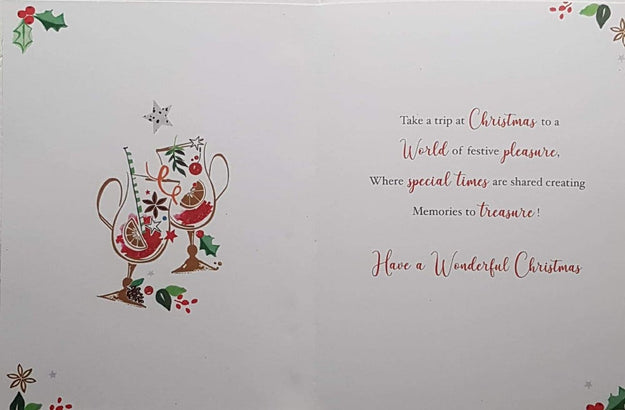 Take a trip at Christmas to a
World of festive pleasure,
Where special times are shared creating
Memories to treasure !
Have a Wonderful Christmas